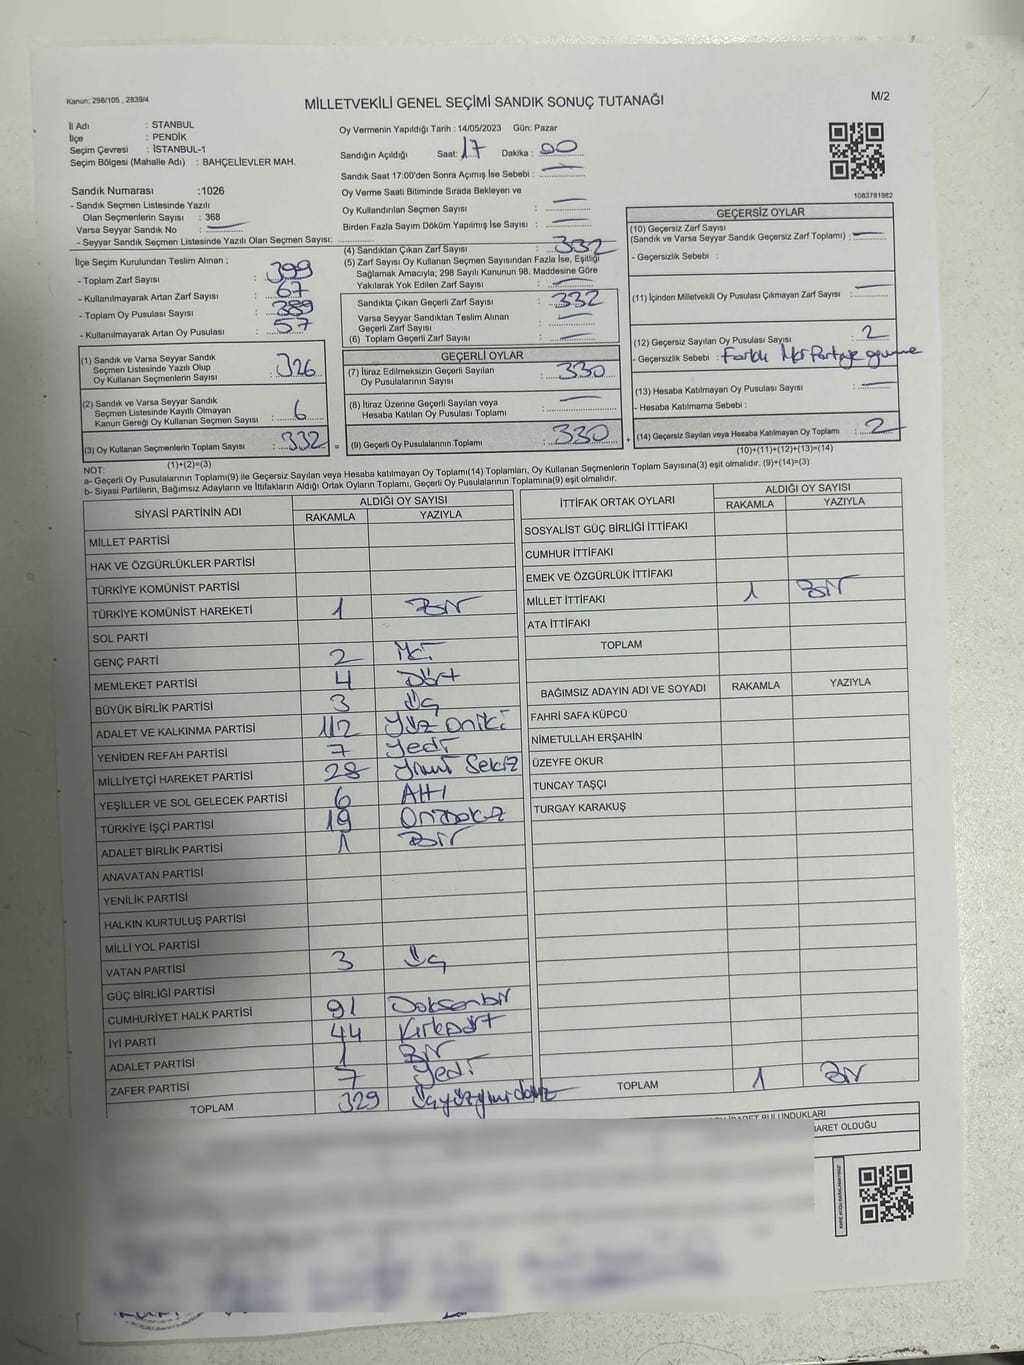 Kanun: 298/105 , 2839/4
MİLLETVEKİLİ GENEL SEÇİMİ SANDIK SONUÇ TUTANAĞI
M/2
İl Adı : STANBUL
İlçe : PENDİK
Seçim Çevresi : İSTANBUL-1
Seçim Bölgesi (Mahalle Adı) : BAHÇELİEVLER MAH.
Sandık Numarası :1026
- Sandık Seçmen Listesinde Yazılı
Olan Seçmenlerin Sayısı : 368
Varsa Seyyar Sandık No :
- Seyyar Sandık Seçmen Listesinde Yazılı Olan Seçmen Sayısı:
Oy Vermenin Yapıldığı Tarih : 14/05/2023 Gün: Pazar
Sandığın Açıldığı Saat: 17 Dakika : 00
Sandık Saat 17:00'den Sonra Açımış İse Sebebi :
Oy Verme Saati Bitiminde Sırada Bekleyen ve
Oy Kullandırılan Seçmen Sayısı :
Birden Fazla Sayım Döküm Yapılmış İse Sayısı :
1083781982
İlçe Seçim Kurulundan Teslim Alınan :
- Toplam Zarf Sayısı : 399
- Kullanılmayarak Artan Zarf Sayısı : 67
- Toplam Oy Pusulası Sayısı : 389
- Kullanılmayarak Artan Oy Pusulası : 57
(1) Sandık ve Varsa Seyyar Sandık
Seçmen Listesinde Yazılı Olup
Oy Kullanan Seçmenlerin Sayısı : 326
(2) Sandık ve Varsa Seyyar Sandık
Seçmen Listesinde Kayıtlı Olmayan
Kanun Gereği Oy Kullanan Seçmen Sayısı : 6
(3) Oy Kullanan Seçmenlerin Toplam Sayısı : 332 =
(1)+(2)=(3)
(4) Sandıktan Çıkan Zarf Sayısı : 332
(5) Zarf Sayısı Oy Kullanan Seçmen Sayısından Fazla İse, Eşitliği
Sağlamak Amacıyla; 298 Sayılı Kanunun 98. Maddesine Göre
Yakılarak Yok Edilen Zarf Sayısı :
Sandıkta Çıkan Geçerli Zarf Sayısı : 332
Varsa Seyyar Sandıktan Teslim Alınan
Geçerli Zarf Sayısı :
(6) Toplam Geçerli Zarf Sayısı :
GEÇERLİ OYLAR
(7) İtiraz Edilmeksizin Geçerli Sayılan
Oy Pusulalarının Sayısı : 330
(8) İtiraz Üzerine Geçerli Sayılan veya
Hesaba Katılan Oy Pusulası Toplamı :
(9) Geçerli Oy Pusulalarının Toplamı : 330 +
GEÇERSİZ OYLAR
(10) Geçersiz Zarf Sayısı
(Sandık ve Varsa Seyyar Sandık Geçersiz Zarf Toplamı) :
- Geçersizlik Sebebi :
(11) İçinden Milletvekili Oy Pusulası Çıkmayan Zarf Sayısı :
(12) Geçersiz Sayılan Oy Pusulası Sayısı : 2
- Geçersizlik Sebebi : Farklı
(13) Hesaba Katılmayan Oy Pusulası Sayısı :
- Hesaba Katılmama Sebebi :
(14) Geçersiz Sayılan veya Hesaba Katılmayan Oy Toplamı : 2
(10)+(11)+(12)+(13)=(14)
NOT:
a- Geçerli Oy Pusulalarının Toplamı(9) ile Geçersiz Sayılan veya Hesaba katılmayan Oy Toplamı(14) Toplamları, Oy Kullanan Seçmenlerin Toplam Sayısına(3) eşit olmalıdır. (9)+(14)=(3)
b- Siyasi Partilerin, Bağımsız Adayların ve İttifakların Aldığı Ortak Oyların Toplamı, Geçerli Oy Pusulalarının Toplamına(9) eşit olmalıdır.
SİYASİ PARTİNİN ADI ALDIĞI OY SAYISI
RAKAMLA YAZIYLA
MİLLET PARTİSİ
HAK VE ÖZGÜRLÜKLER PARTİSİ
TÜRKİYE KOMÜNİST PARTİSİ
TÜRKİYE KOMÜNİST HAREKETİ 1 Bir
SOL PARTİ
GENÇ PARTİ 2 İki
MEMLEKET PARTİSİ 4 Dört
BÜYÜK BİRLİK PARTİSİ 3 Üç
ADALET VE KALKINMA PARTİSİ 112 Yüz oniki
YENİDEN REFAH PARTİSİ 7 Yedi
MİLLİYETÇİ HAREKET PARTİSİ 28 Yirmi Sekiz
YEŞİLLER VE SOL GELECEK PARTİSİ 6 Altı
TÜRKİYE İŞÇİ PARTİSİ 19 Ondokuz
ADALET BİRLİK PARTİSİ 1 Bir
ANAVATAN PARTİSİ
YENİLİK PARTİSİ
HALKIN KURTULUŞ PARTİSİ
MİLLİ YOL PARTİSİ
VATAN PARTİSİ 3 Üç
GÜÇ BİRLİĞİ PARTİSİ
CUMHURİYET HALK PARTİSİ 91 Doksanbir
İYİ PARTİ 44 Kırkdört
ADALET PARTİSİ 1 Bir
ZAFER PARTİSİ 7 Yedi
TOPLAM 329 Üçyüzyirmidokuz
İTTİFAK ORTAK OYLARI ALDIĞI OY SAYISI
RAKAMLA YAZIYLA
SOSYALİST GÜÇ BİRLİĞİ İTTİFAKI
CUMHUR İTTİFAKI
EMEK VE ÖZGÜRLÜK İTTİFAKI
MİLLET İTTİFAKI 1 Bir
ATA İTTİFAKI
TOPLAM
BAĞIMSIZ ADAYIN ADI VE SOYADI RAKAMLA YAZIYLA
FAHRİ SAFA KÜPCÜ
NİMETULLAH ERŞAHİN
ÜZEYFE OKUR
TUNCAY TAŞÇI
TURGAY KARAKUŞ
TOPLAM 1 Bir
BULUNDUKLARI
BARET OLDUĞU